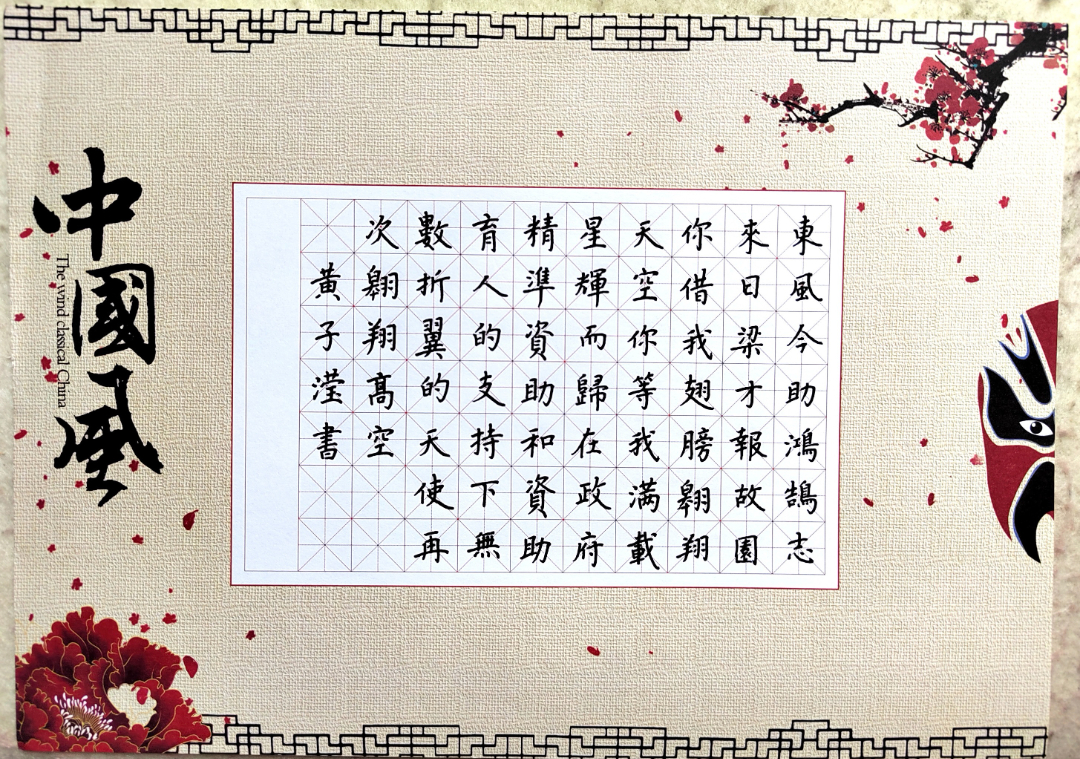 東風今助鴻鵠志
來日梁才報故園
你借我翅膀翱翔
天空你等我满載
星輝而歸在政府
精準資助和資助
育人的支持下無
數折翼的天使再
次翱翔高空
黃子滢書
中國風
The wind classical China